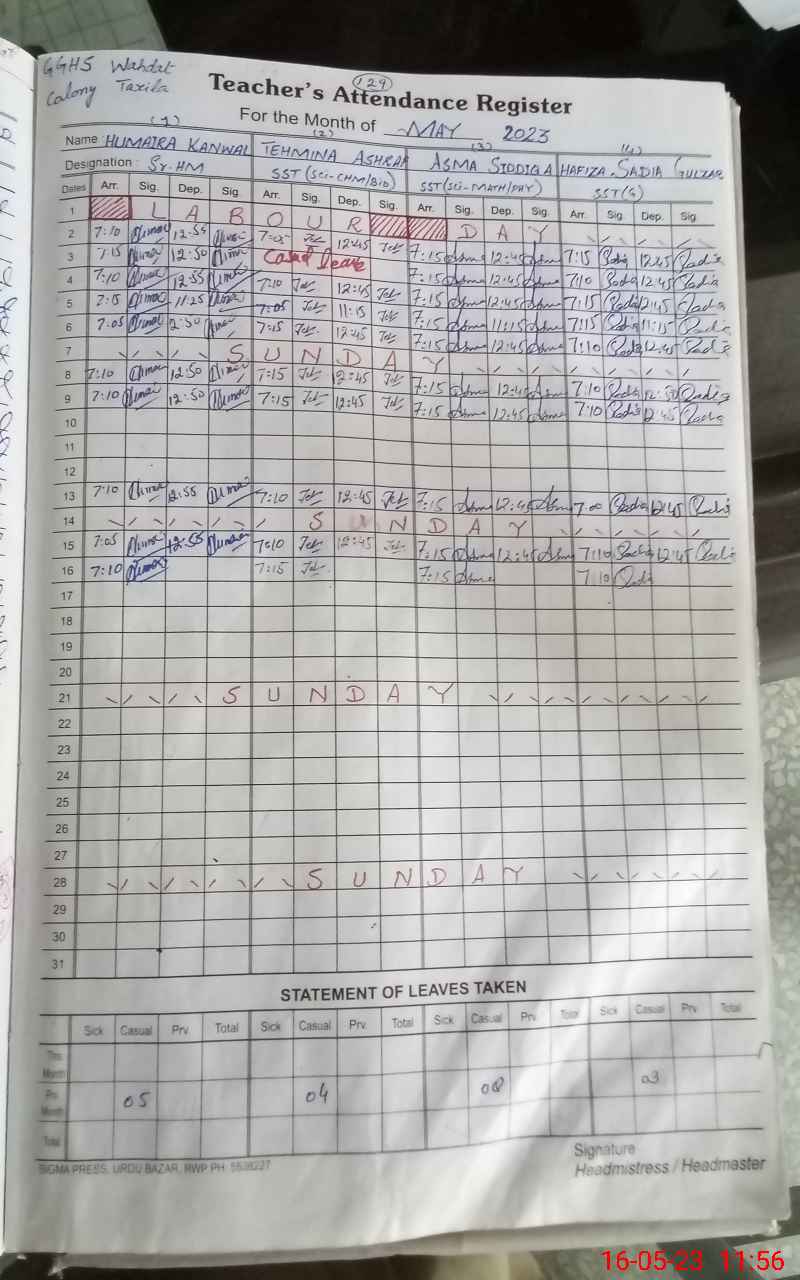 GGHS Wahdat
Calony Taxila
129
Teacher's Attendance Register
For the Month of MAY 2023
(1) (2) (3) (4)
Name : HUMAIRA KANWAL TEHMINA ASHRAF ASMA SIDDIQA HAFIZA SADIA GULZAR
Designation : Sr. HM SST (Sci-CHM/BIO) SST (Sci-MATH/PHY) SST (G)
Dates Arr. Sig. Dep. Sig. Arr. Sig. Dep. Sig. Arr. Sig. Dep. Sig. Arr. Sig. Dep. Sig.
1 L A B O U R D A Y
2 7:10 12:55 7:05 12:45 7:15 Asma 12:45 Asma 7:15 Sadia 12:45 Sadia
3 7:15 12:50 Casual Leave 7:15 Asma 12:45 Asma 7:10 Sadia 12:45 Sadia
4 7:10 12:55 7:10 12:45 7:15 Asma 12:45 Asma 7:15 Sadia 12:45 Sadia
5 7:15 11:25 7:05 11:15 7:15 Asma 11:15 Asma 7:15 Sadia 11:15 Sadia
6 7:05 12:50 7:15 12:45 7:15 Asma 12:45 Asma 7:10 Sadia 12:45 Sadia
7 S U N D A Y
8 7:10 12:50 7:15 12:45 7:15 Asma 12:45 Asma 7:10 Sadia 12:50 Sadia
9 7:10 12:50 7:15 12:45 7:15 Asma 12:45 Asma 7:10 Sadia 12:45 Sadia
10
11
12
13 7:10 12:55 7:10 12:45 7:15 Asma 12:45 Asma 7:00 Sadia 12:45 Sadia
14 S U N D A Y
15 7:05 12:55 7:10 12:45 7:15 Asma 12:45 Asma 7:10 Sadia 12:45 Sadia
16 7:10 7:15 7:15 Asma 7:10 Sadia
17
18
19
20
21 S U N D A Y
22
23
24
25
26
27
28 S U N D A Y
29
30
31
STATEMENT OF LEAVES TAKEN
Sick Casual Prv. Total Sick Casual Prv. Total Sick Casual Prv. Total Sick Casual Prv. Total
This Month
Pre. Month 05 04 08 03
Total
SIGMA PRESS, URDU BAZAR, RWP PH:
Signature
Headmistress / Headmaster
16-05-23 11:56